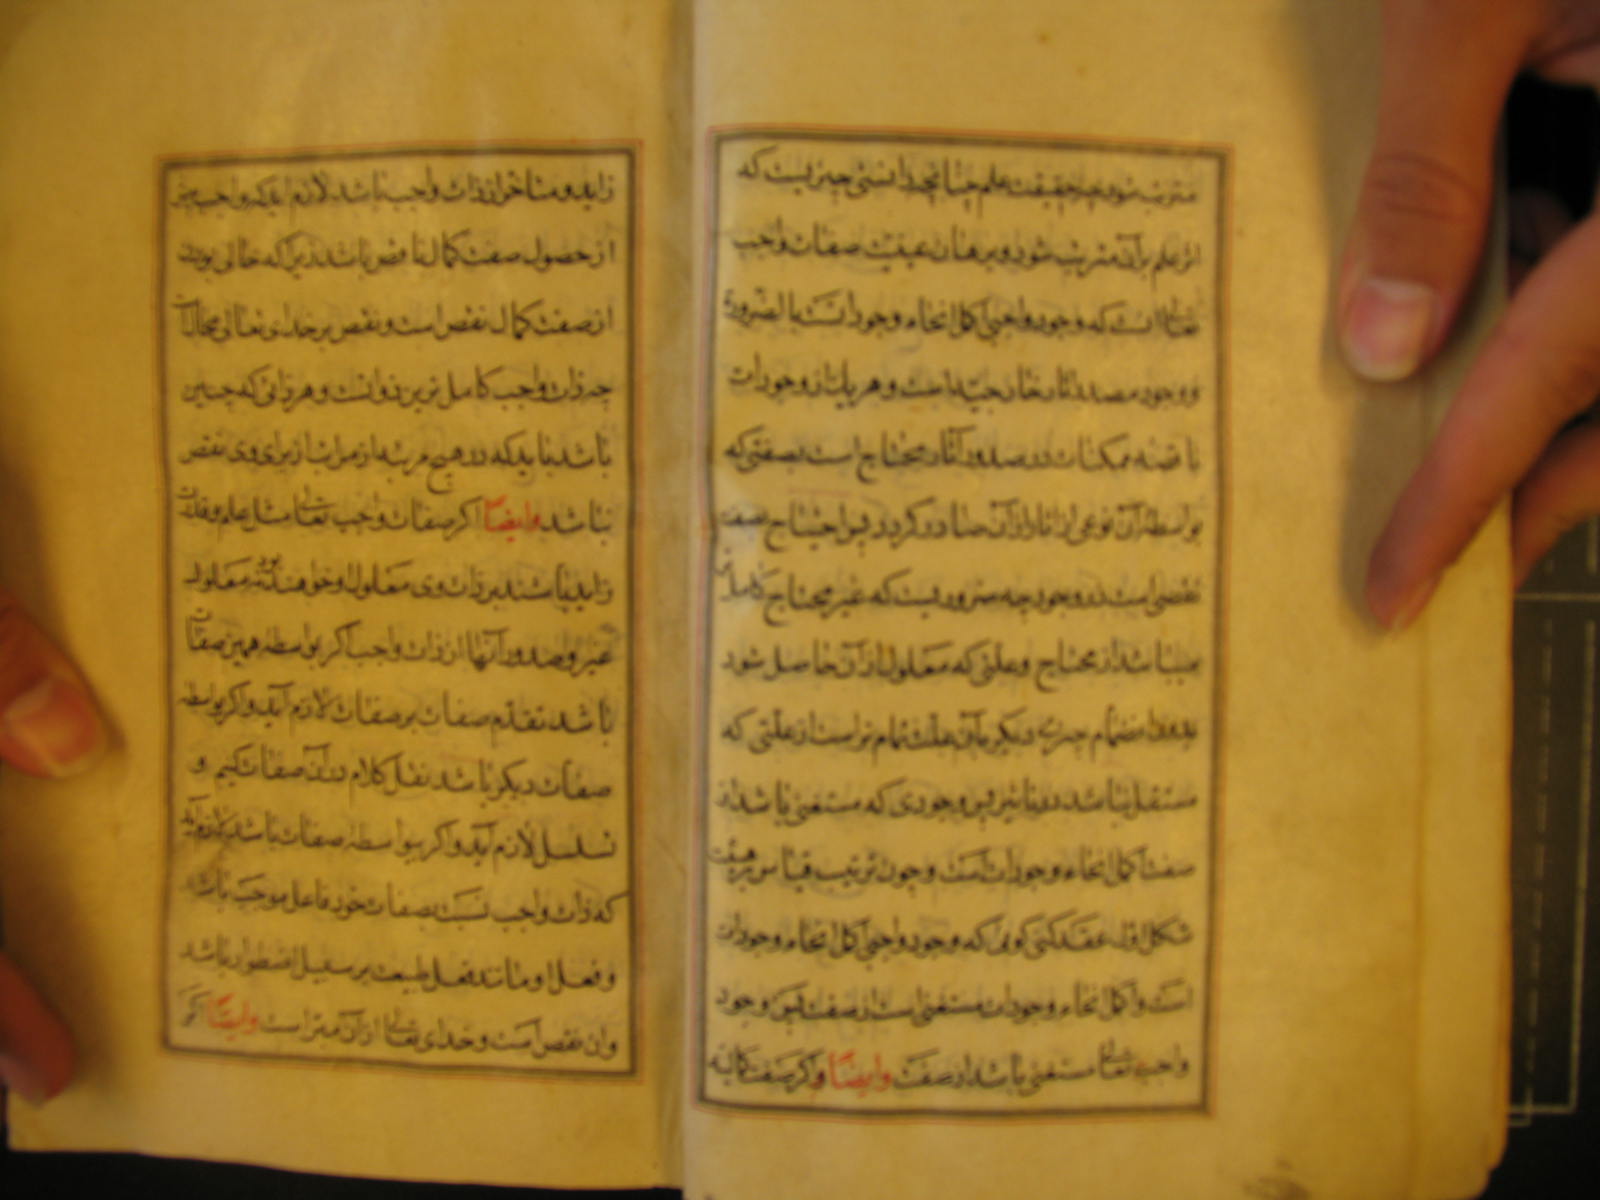 مترتب شود چه حقیقت علم چنانچه دانستی چیزیست که
اثر علم بر آن مترتب شود و برهان عینیت صفات واجب
تعالی آنست که وجود واجبی اکمل انحاء وجوداتست بالضرورة
و وجود مصدر آثار خارجیه است و هر یک از وجودات
ناقصه ممکنات در صدور آثار محتاج است بصفتی که
بواسطهٔ آن نوعی از آثار از آن صادر گردد پس احتیاج بصفت
نقصی است در وجود چه ضروریست که غیر محتاج کاملتر
میباشد از محتاج و علتی که معلول از آن حاصل شود
بدون انضمام چیزی دیگر بآن علت تمام تر است از علتی که
مستقل نباشد در تاثیر پس وجودی که مستغنی باشد از
صفت اکمل انحاء وجودات است و چون ترتیب قیاس بر هیئت
شکل اول عقد کنی کوئی که وجود واجبی اکمل انحاء وجودات
است و اکمل انحاء وجودات مستغنی است از صفت پس وجود
واجب تعالی مستغنی باشد از صفت وایضاً اگر صفت کمالیه
زاید و متاخر از ذات واجب باشد لازم آید که واجب پیش
از حصول صفت کمال ناقص باشد زیرا که خالی بودن
از صفت کمال نقص است و نقص بر خدای تعالی محالست
چه ذات واجب کامل ترین ذواتست و هر ذاتی که چنین
باشد باید که در هیچ مرتبه از مراتب از برای وی نقص
نباشد وایضاً اگر صفات واجب تعالی مثل علم و قدرت
زاید باشند بر ذات وی معلول او خواهند بود نه معلول
غیر و صدور آنها از ذات واجب اگر بواسطهٔ همین صفات
باشد تقدّم صفات بر صفات لازم آید و اگر بواسطه
صفات دیگر باشد نقل کلام در آن صفات کنیم و
تسلسل لازم آید و اگر بی واسطهٔ صفات باشد لازم آید
که ذات واجب نسبت بصفات خود فاعل موجب باشد
و فعل او مانند فعل طبیعت بر سبیل اضطرار باشد
و آن نقص است و خدای تعالی از آن مبرّا است وایضاً اگر